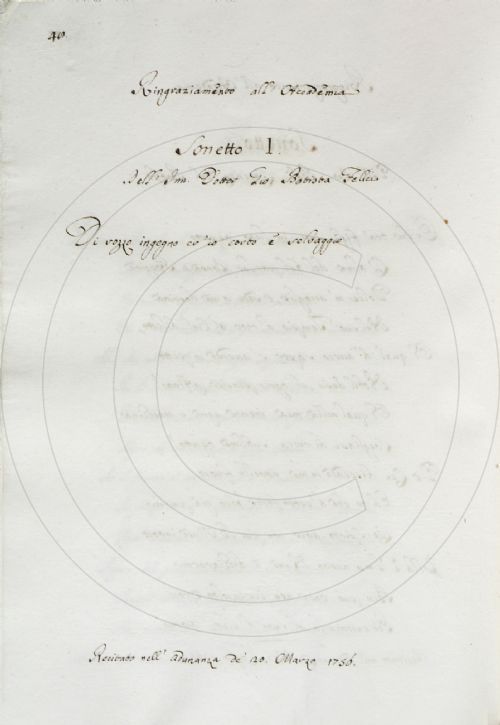 40.
Ringraziamento all' Accademia
Sonetto I.
Dell' Im. Dottor Gio. Batista Felici
Di rozzo ingegno co' io rozzo e selvaggio
Recitato nell' Adunanza de' 20. Marzo 1756.